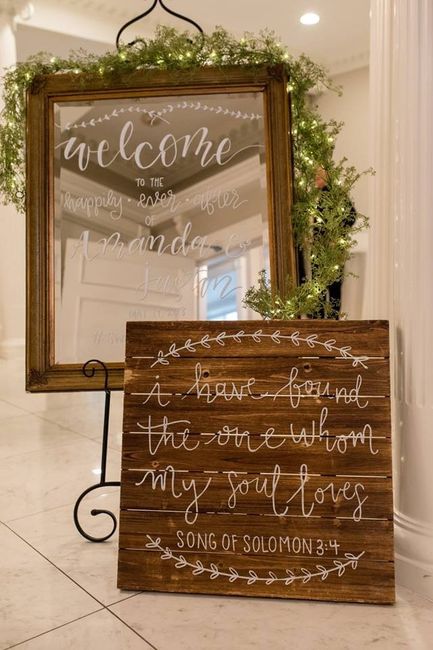 welcome
to the
happily · ever · after
of
Amanda &
Jason
i have found
the one whom
my soul loves
SONG OF SOLOMON 3:4